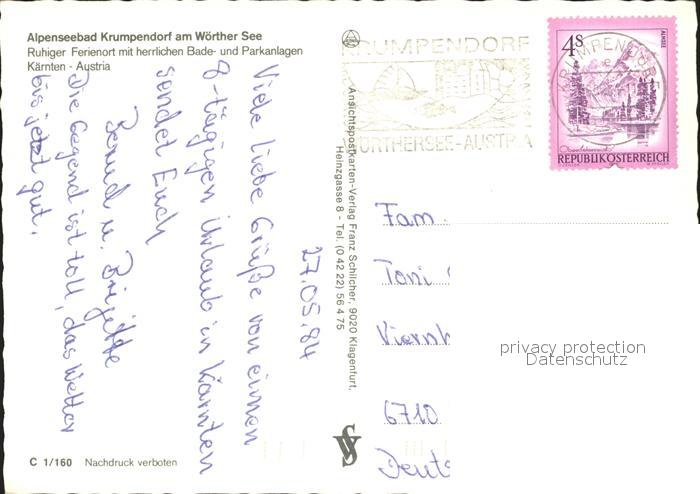 Alpenseebad Krumpendorf am Wörther See
Ruhiger Ferienort mit herrlichen Bade- und Parkanlagen
Kärnten - Austria
27.05.84
Viele liebe Grüße von einem
8-tägigen Urlaub in Kärnten
sendet Euch
Bernd u. Brigitte
Die Gegend ist toll, das Wetter
bis jetzt gut.
C 1/160 Nachdruck verboten
Ansichtspostkarten-Verlag Franz Schilcher, 9020 Klagenfurt,
Heinzgasse 8 - Tel. (0 42 22) 56 4 75
KRUMPENDORF
WÖRTHERSEE-AUSTRIA
4S
ALMSEE
REPUBLIK ÖSTERREICH
Fam.
Toni
Viernh
6710
Deuts
privacy protection
Datenschutz